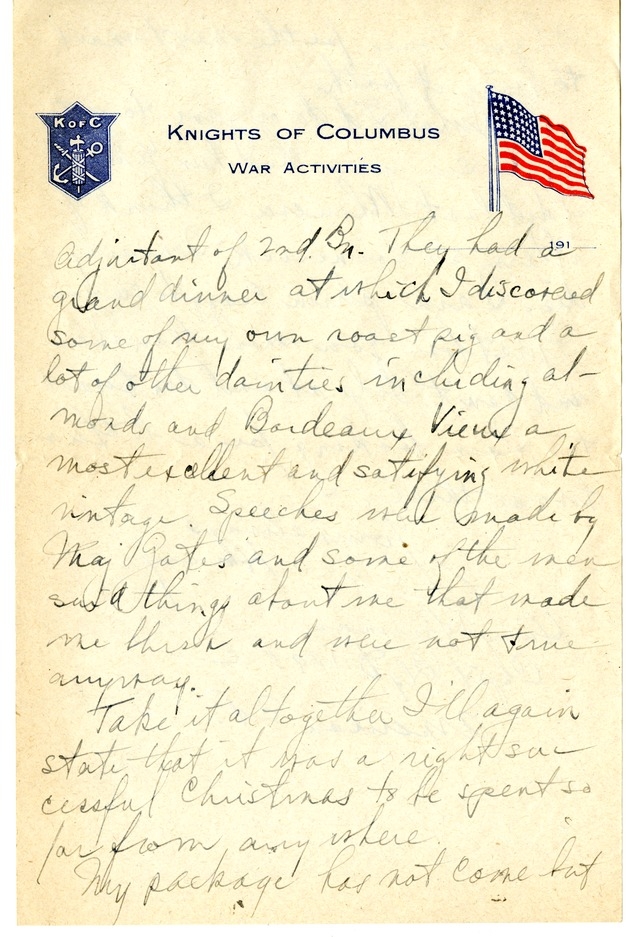 K of C
KNIGHTS OF COLUMBUS
WAR ACTIVITIES
191
adjutant of 2nd. Bn. They had a
grand dinner at which I discovered
some of my own roast pig and a
lot of other dainties including al-
monds and Bordeaux Vieux a
most excellent and satifying white
vintage. Speeches were made by
Maj Gates and some of the men
said things about me that made
me blush and were not true
anyway.
Take it altogether I'll again
state that it was a right suc-
cessful Christmas to be spent so
far from any where.
My package has not come but